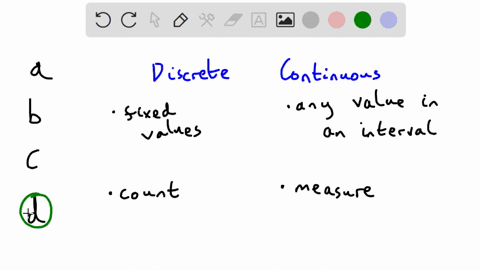 a Discrete Continuous
b • fixed values • any value in an interval
c
d • count • measure